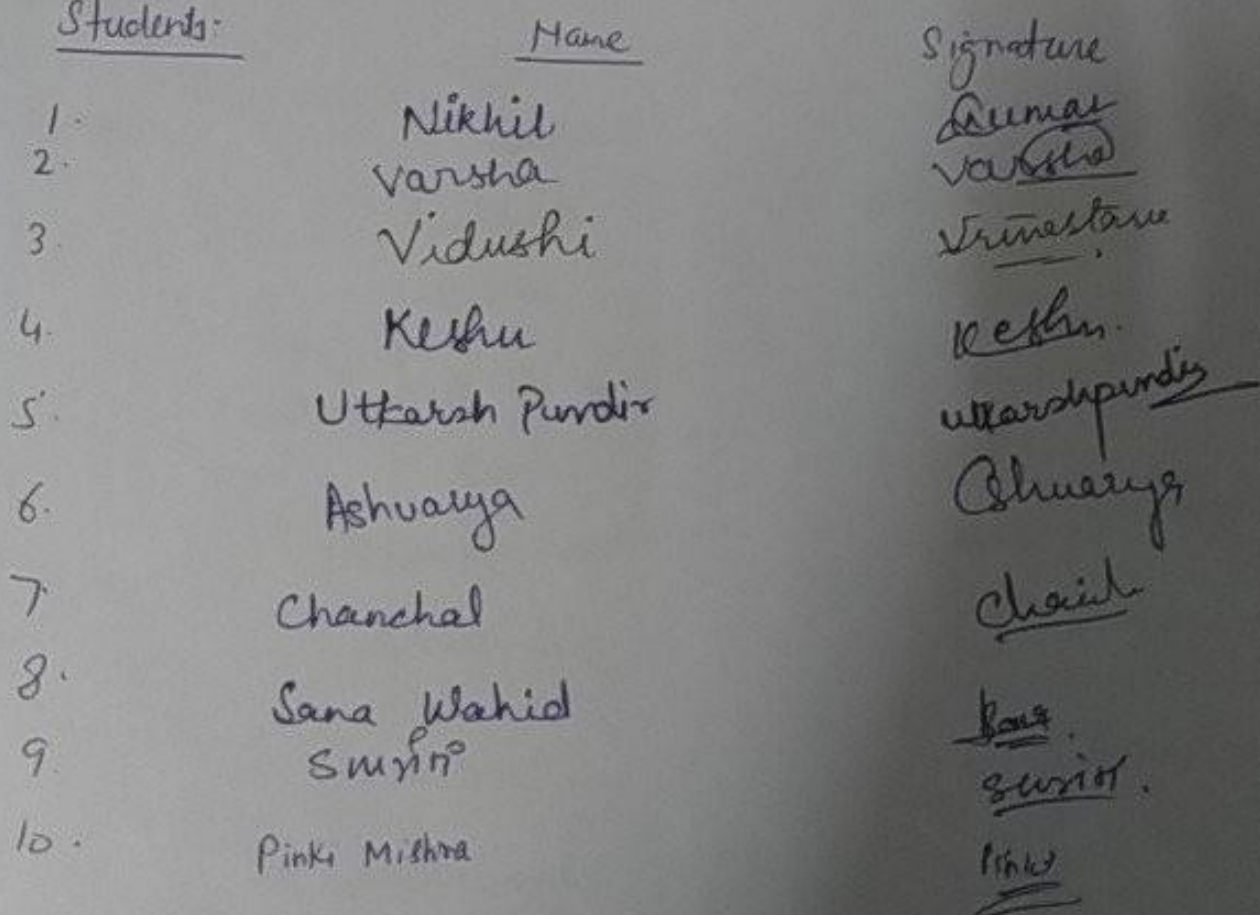 Students: Name Signature
1. Nikhil Kumar
2. Varsha Varsha
3. Vidushi
4. Keshu Keshu.
5. Utkarsh Pundir utkarshpundir
6. Ashvarya Ashvarya
7. Chanchal
8. Sana Wahid
9.
10. Pinki Mishra Pinki